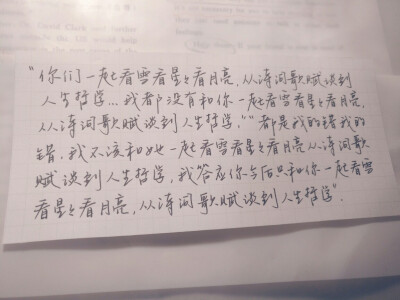 "你们一起看雪看星星看月亮，从诗词歌赋谈到
人生哲学…我都没有和你一起看雪看星星看月亮，
从诗词歌赋谈到人生哲学。""都是我的错我的
错，我不该和她一起看雪看星星看月亮从诗词歌
赋谈到人生哲学，我答应你今后只和你一起看雪
看星星看月亮，从诗词歌赋谈到人生哲学"。